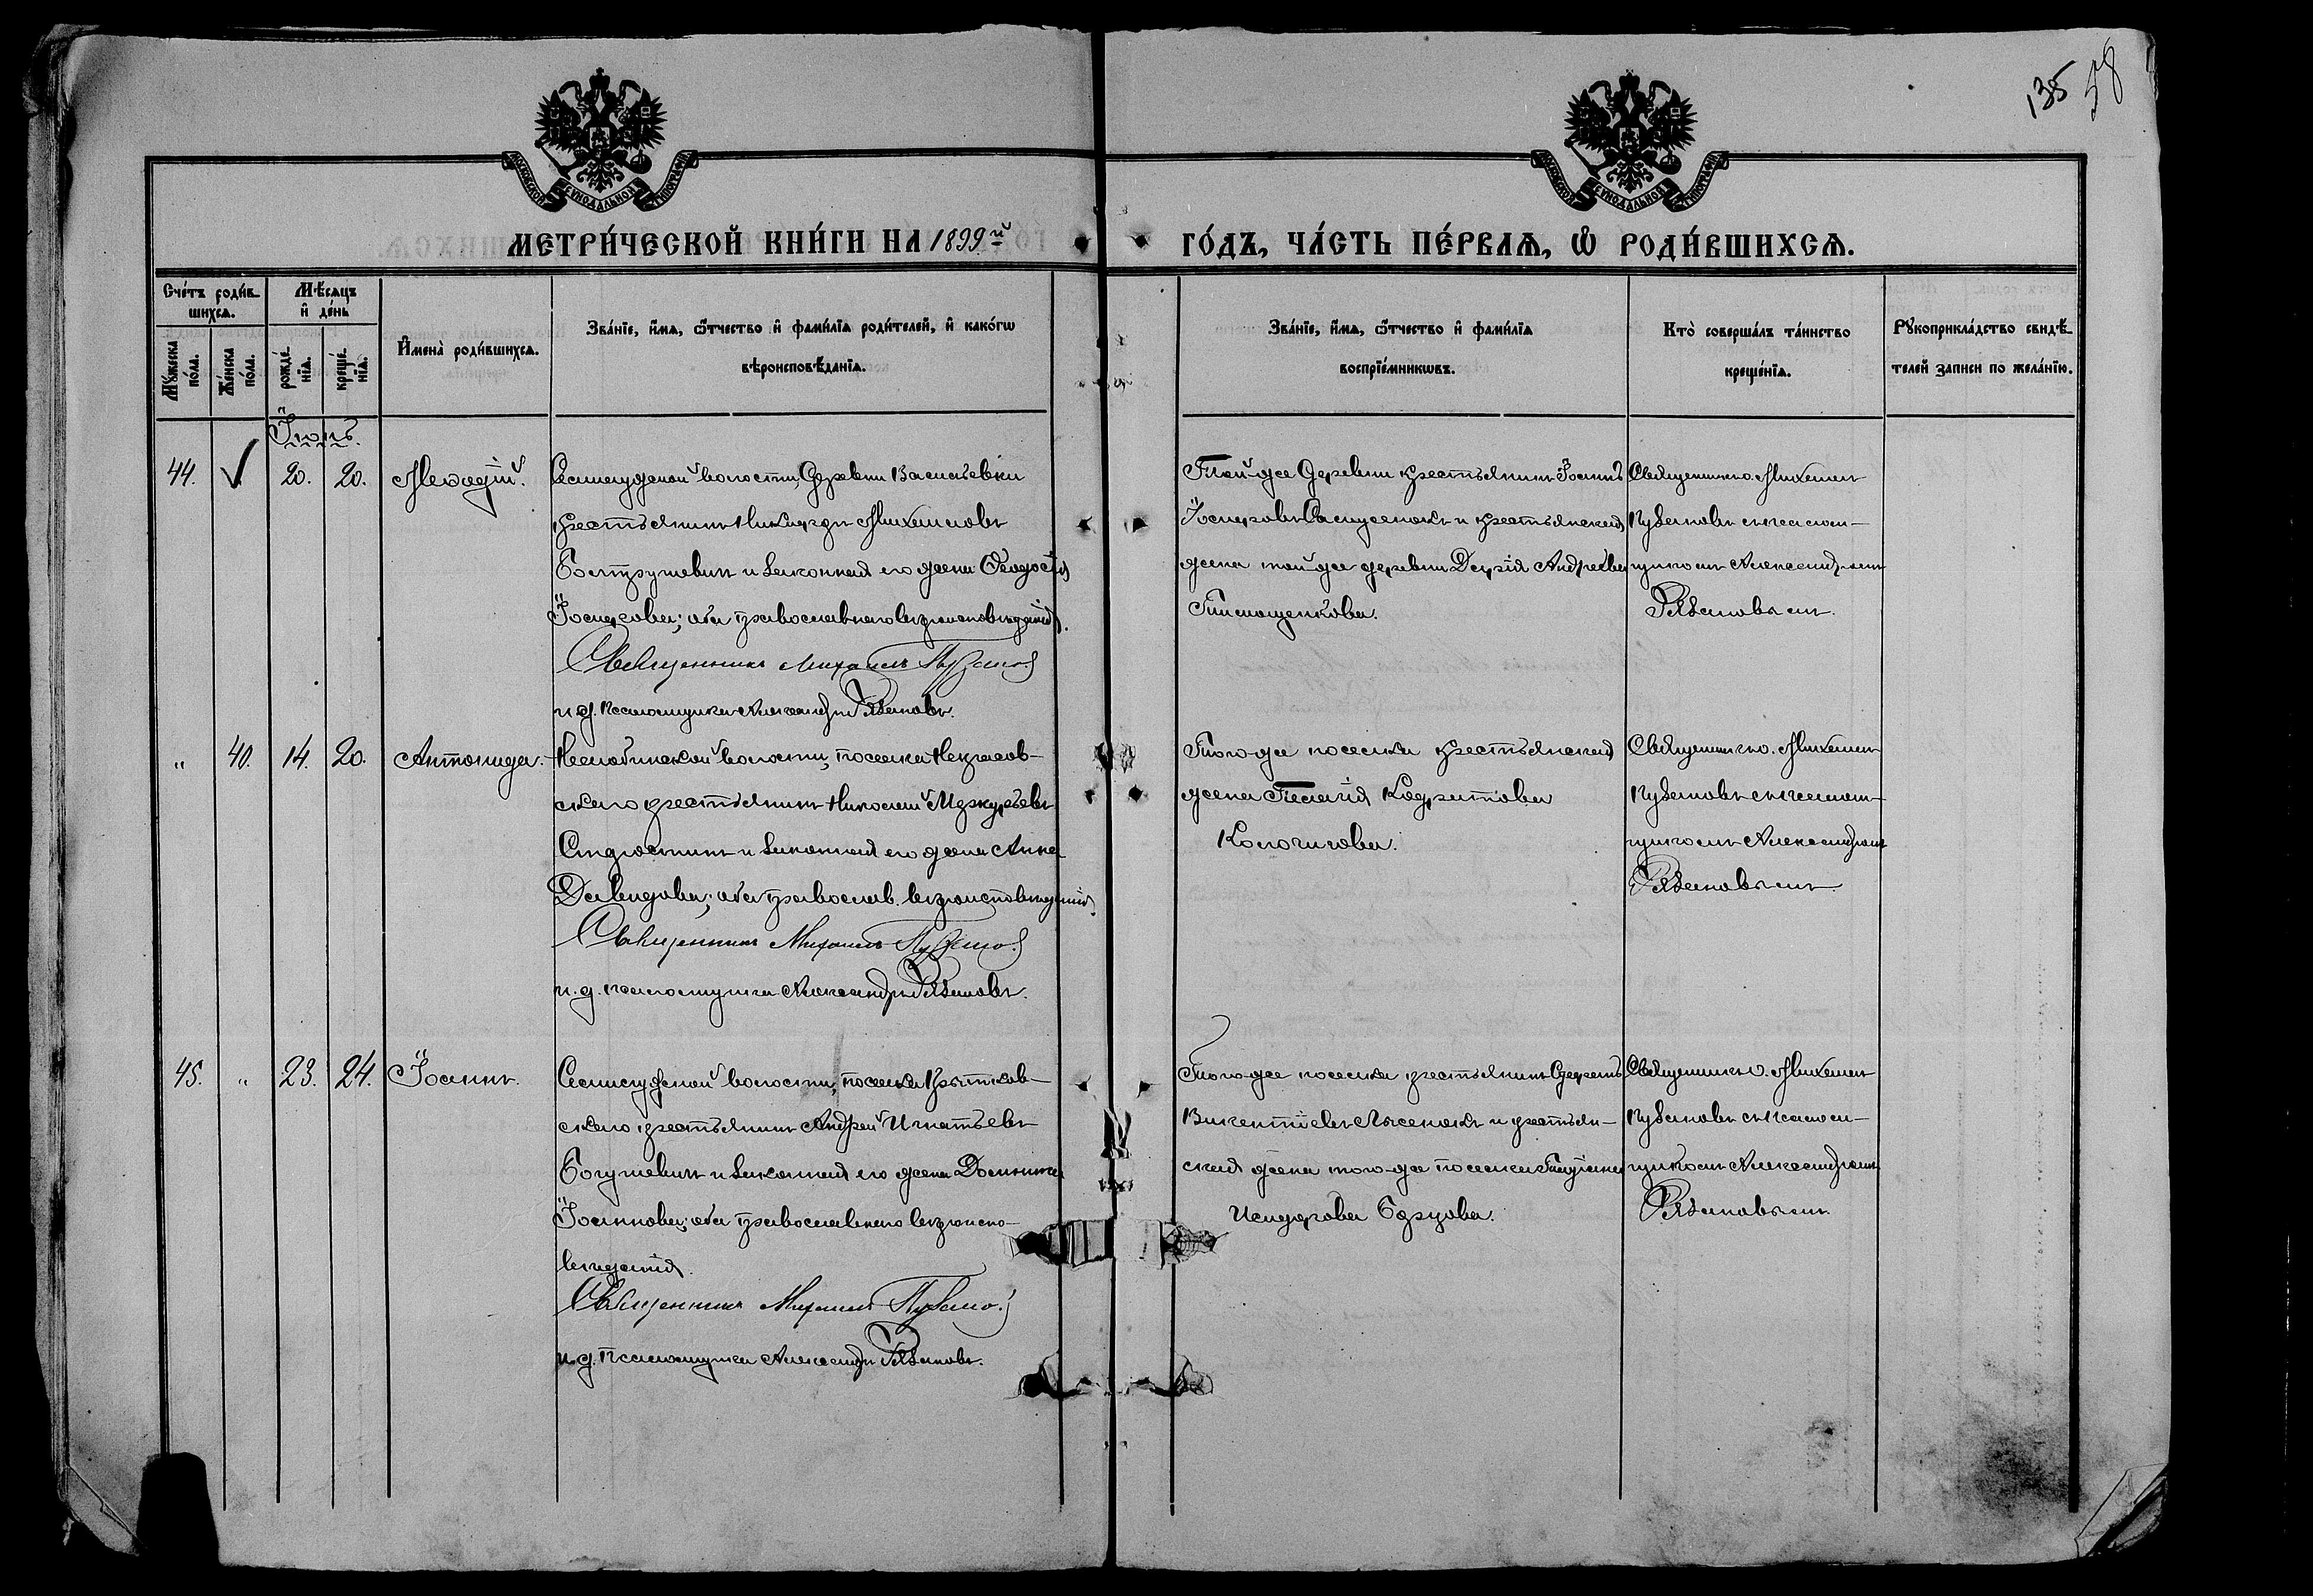 135 58
МЕТРИ́ЧЕСКОЙ КНИ́ГИ НА 1899 й
ГО́ДЪ, ЧА́СТЬ ПЕ́РВАЯ, Ѽ РОДИ́ВШИХСЯ.
Сче́тъ роди́в-
шихся.
Мѣ́сяцъ
и҆ де́нь
Мꙋ́жеска
по́ла.
Же́нска
по́ла.
рожде́-
нїя.
креще́-
нїя.
И҆мена̀ роди́вшихся.
Зва́нїе, и҆́мя, ѻ҆́тчество и҆ фами́лїя роди́телей, и҆ како́гѡ
вѣроисповѣ́данїя.
Зва́нїе, и҆́мя, ѻ҆́тчество и҆ фами́лїя
воспрїе́мникѡвъ.
Кто̀ соверша́лъ та́инство
креще́нїя.
Рꙋкоприкла́дство свидѣ́-
телей записи по жела́нїю.
Іюнь.
44.
20. 20.
Меѳодій.
волости, Деревни Васильевки
крестьянинъ Никандръ Михаиловъ
и законная его жена Ѳеодосія
Іосифова; оба православнаго вѣроисповѣданія.
Священникъ Михаилъ Пузанов
и. д. псаломщика Александръ Рязановъ.
Той-же Деревни крестьянинъ Іоаннъ
Іосифовъ и крестьянская
жена той же деревни Дарія Андреева
Тимощенкова.
Священникъ Михаилъ
Пузановъ съ псалом-
щикомъ Александромъ
Рязановымъ.
„ 40. 14. 20.
Антонида.
волости, поселка Некрасов-
скаго крестьянинъ Николай Меркурьевъ
и законная его жена Анна
Давидова; оба православ. вѣроисповѣданія.
Священникъ Михаилъ Пузанов
и. д. псаломщика Александръ Рязановъ.
Того-же поселка крестьянская
жена Пелагія Кодратова
Колочкова.
Священникъ о. Михаилъ
Пузановъ съ псалом-
щикомъ Александромъ
Рязановымъ.
45. „ 23. 24.
Іоаннъ.
волости, поселка
скаго крестьянинъ Андрей Игнатьевъ
Богушевичъ и законная его жена Домника
Іоаннова; оба православнаго вѣроиспо-
вѣданія.
Священникъ Михаилъ Пузанов
и. д. Псаломщика Александръ Рязановъ.
Того-же поселка крестьянинъ
Викентіевъ и крестьян-
ская жена того-же поселка
Исидорова
Священникъ о. Михаилъ
Пузановъ съ псалом-
щикомъ Александромъ
Рязановымъ.